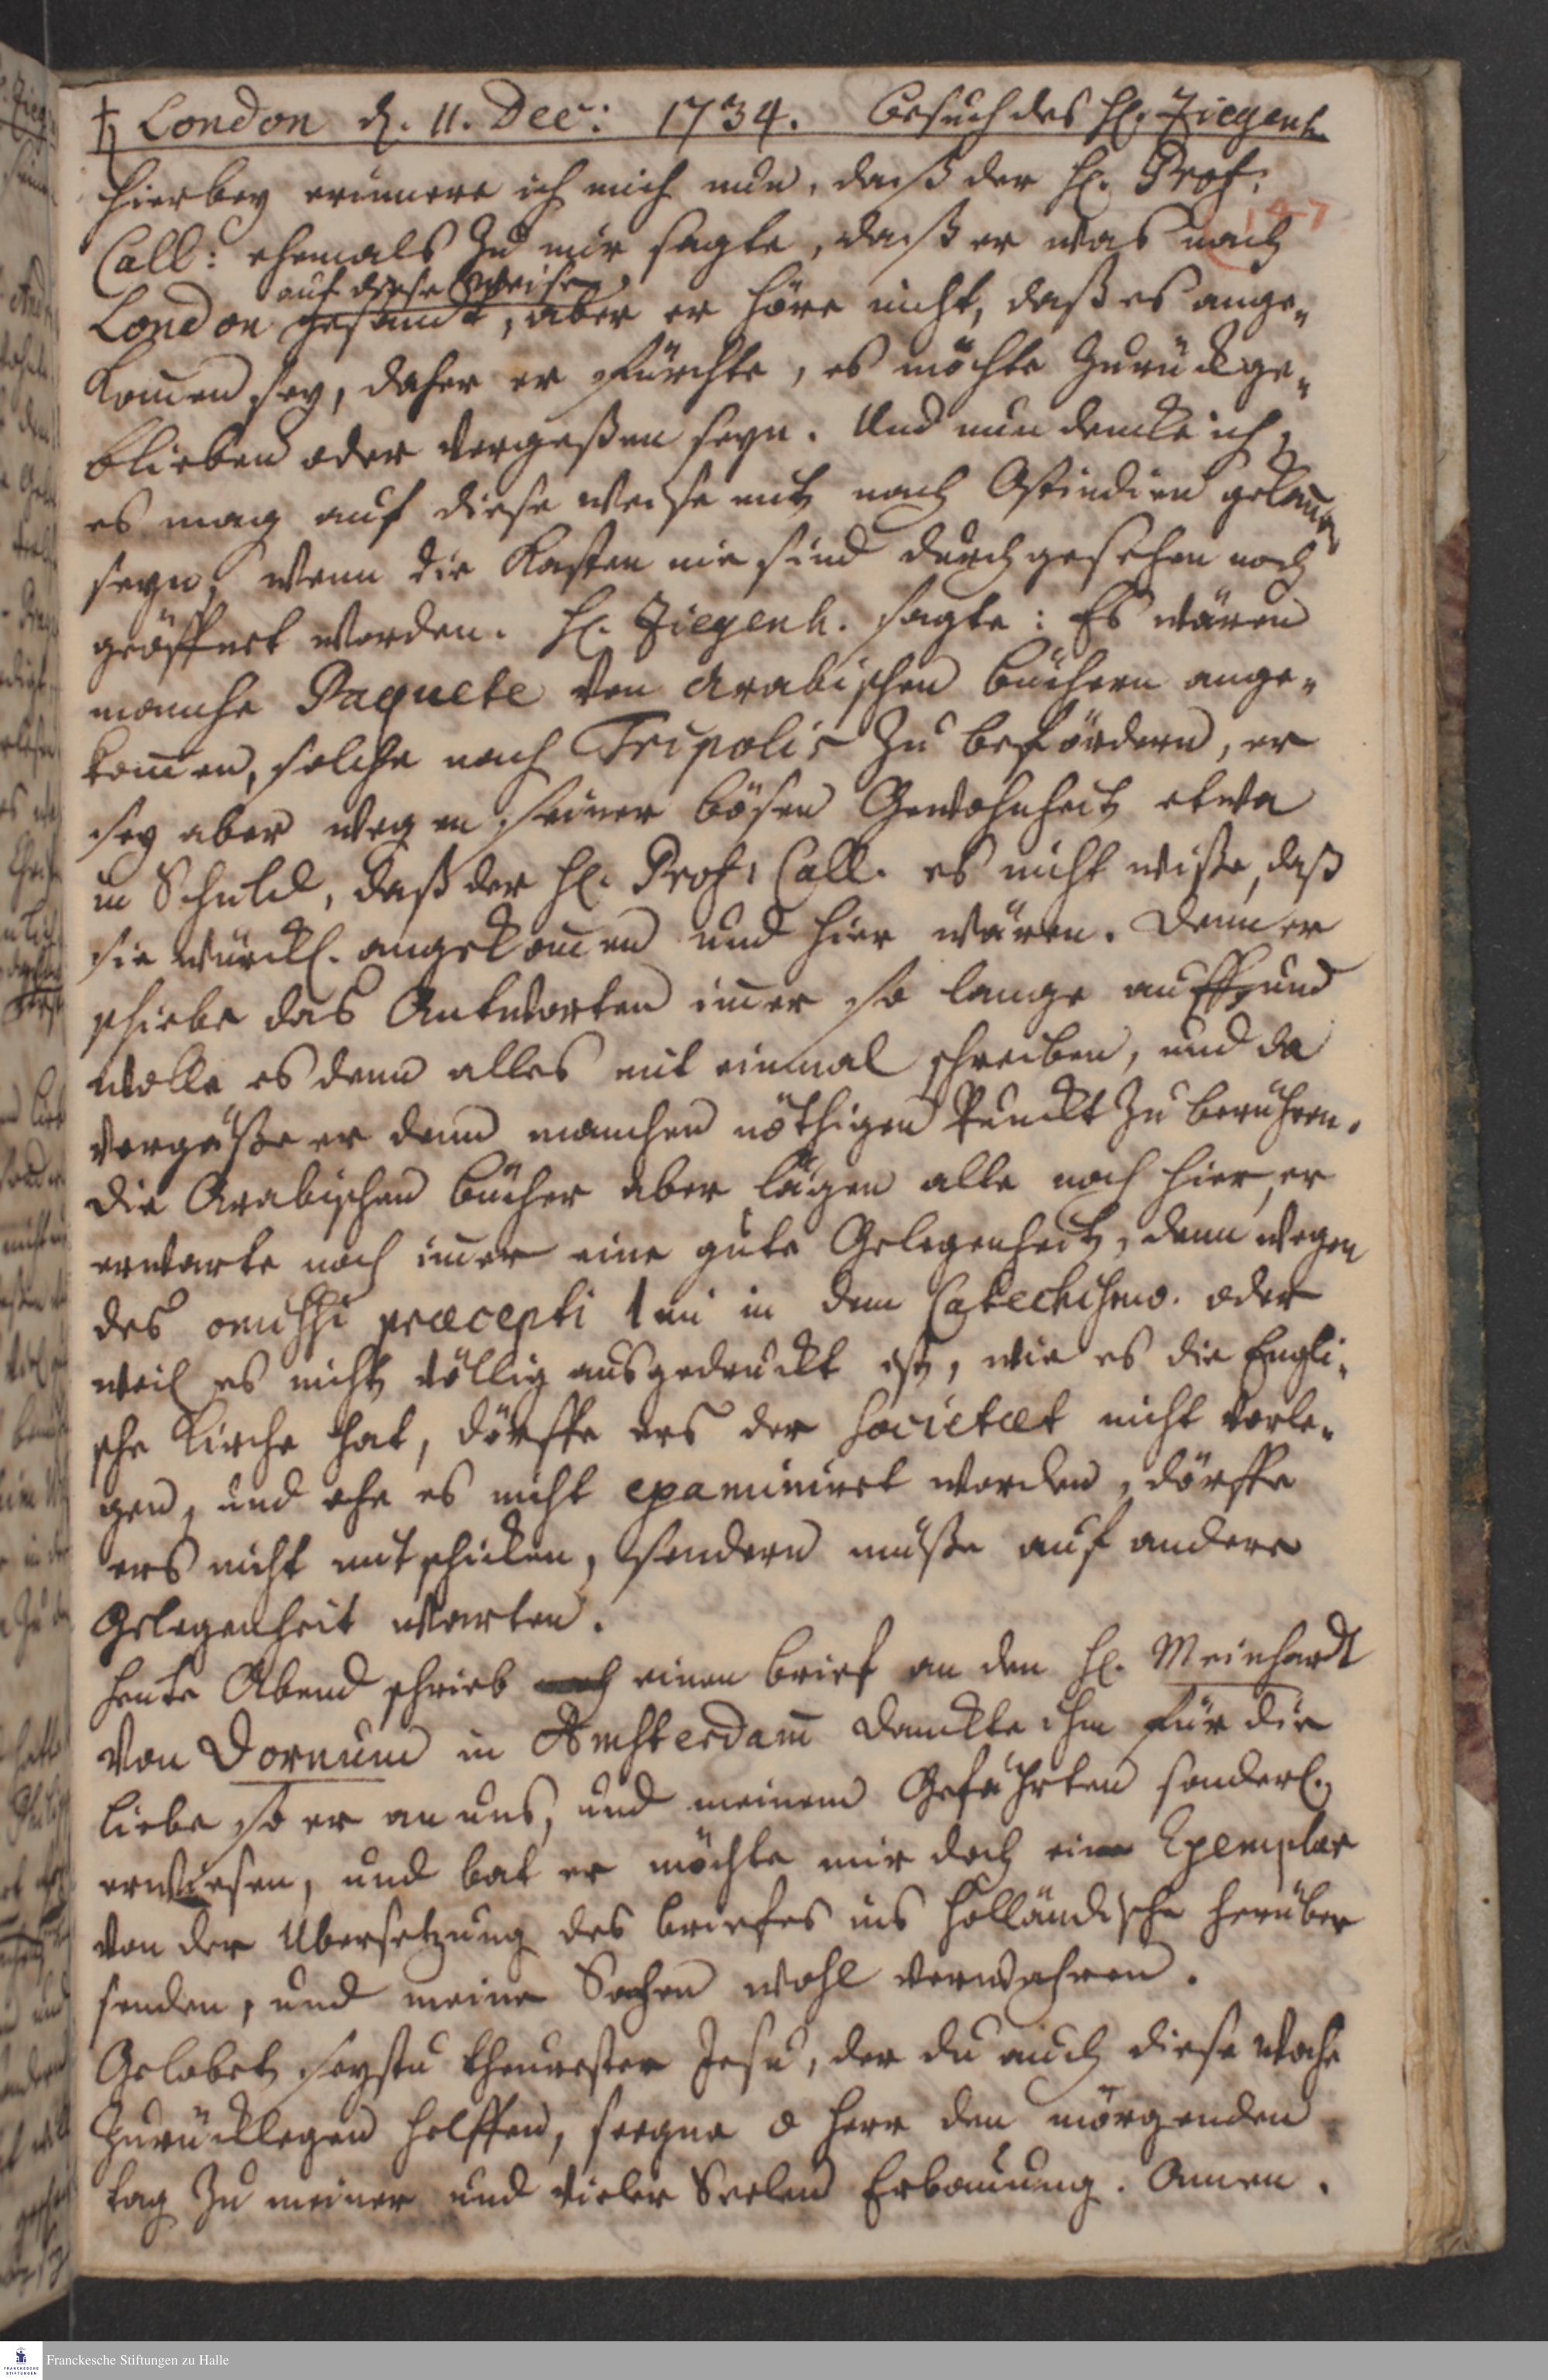 † London d. 11. Dec: 1734. Besuch des H. Ziegenh.
Hierbey erinnere ich mich nun, daß der H. Prof:
147
Call: ehemals zu mir sagte, daß er was nach
auf diese Weise
London gesandt, aber er höre nicht, daß es ange-
kommen sey, daher er fürchte, es möchte zurückge-
blieben oder vergeßen seyn. Und nun dencke ich,
es mag auf diese Weise mit nach Ostindien gekommen
seyn, wenn die Kasten nie sind durchgesehen noch
geöffnet worden. H. Ziegenh. sagte: Es wären
manche Paquete von Arabischen Büchern ange-
kommen, solche nach Tripolis zu befördern, er
sey aber wegen seiner bösen Gewohnheit etwa
in Schuld, daß der H. Prof: Call. es nicht wiße, daß
sie würckl. angekommen und hier wären. Denn er
schiebe das Antworten immer so lange auff, und
wolle es denn alles mit einmal schreiben, und da
vergäße er denn manchen nöthigen Punckt zu berühren.
Die Arabischen Bücher aber lägen alle noch hier, er
erwarte noch immer eine gute Gelegenheit, denn wegen
des omissi præcepti 1mi in dem Catechismo. oder
weil es nicht völlig ausgedruckt ist, wie es die Engli-
sche Kirche hat, dörffe ers der Societæt nicht vorle-
gen, und ehe es nicht examiniret worden, dörffe
ers nicht mitschicken, sondern müße auf andere
Gelegenheit warten.
Heute Abend schrieb einen Brief an den H. Meinhardt
von Dornum in Amsterdam danckte ihm für die
Liebe so er an uns, und meinem Gefährten sonderl.
erwiesen, und bat er möchte mir doch ein Exemplar
von der Ubersetzung des Briefes ins Holländische herüber
senden, und meine Sachen wohl verwahren.
Gelobet seystu theurester Jesu, der du auch diese Woche
zurücklegen helffen, seegne o Herr den morgenden
Tag zu meiner und vieler Seelen Erbauung. Amen.
Franckesche Stiftungen zu Halle